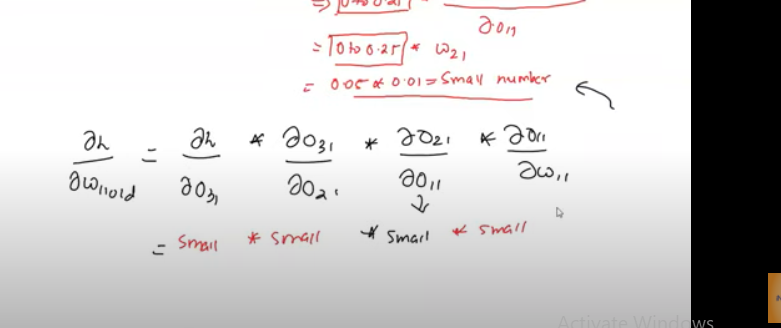 ∂O11
= [0 to 0.25] * ω21
= 0.05 * 0.01 = Small number
∂h/∂ω11old = ∂h/∂O31 * ∂O31/∂O21 * ∂O21/∂O11 * ∂O11/∂ω11
= Small * Small * Small * Small
Activate Windows